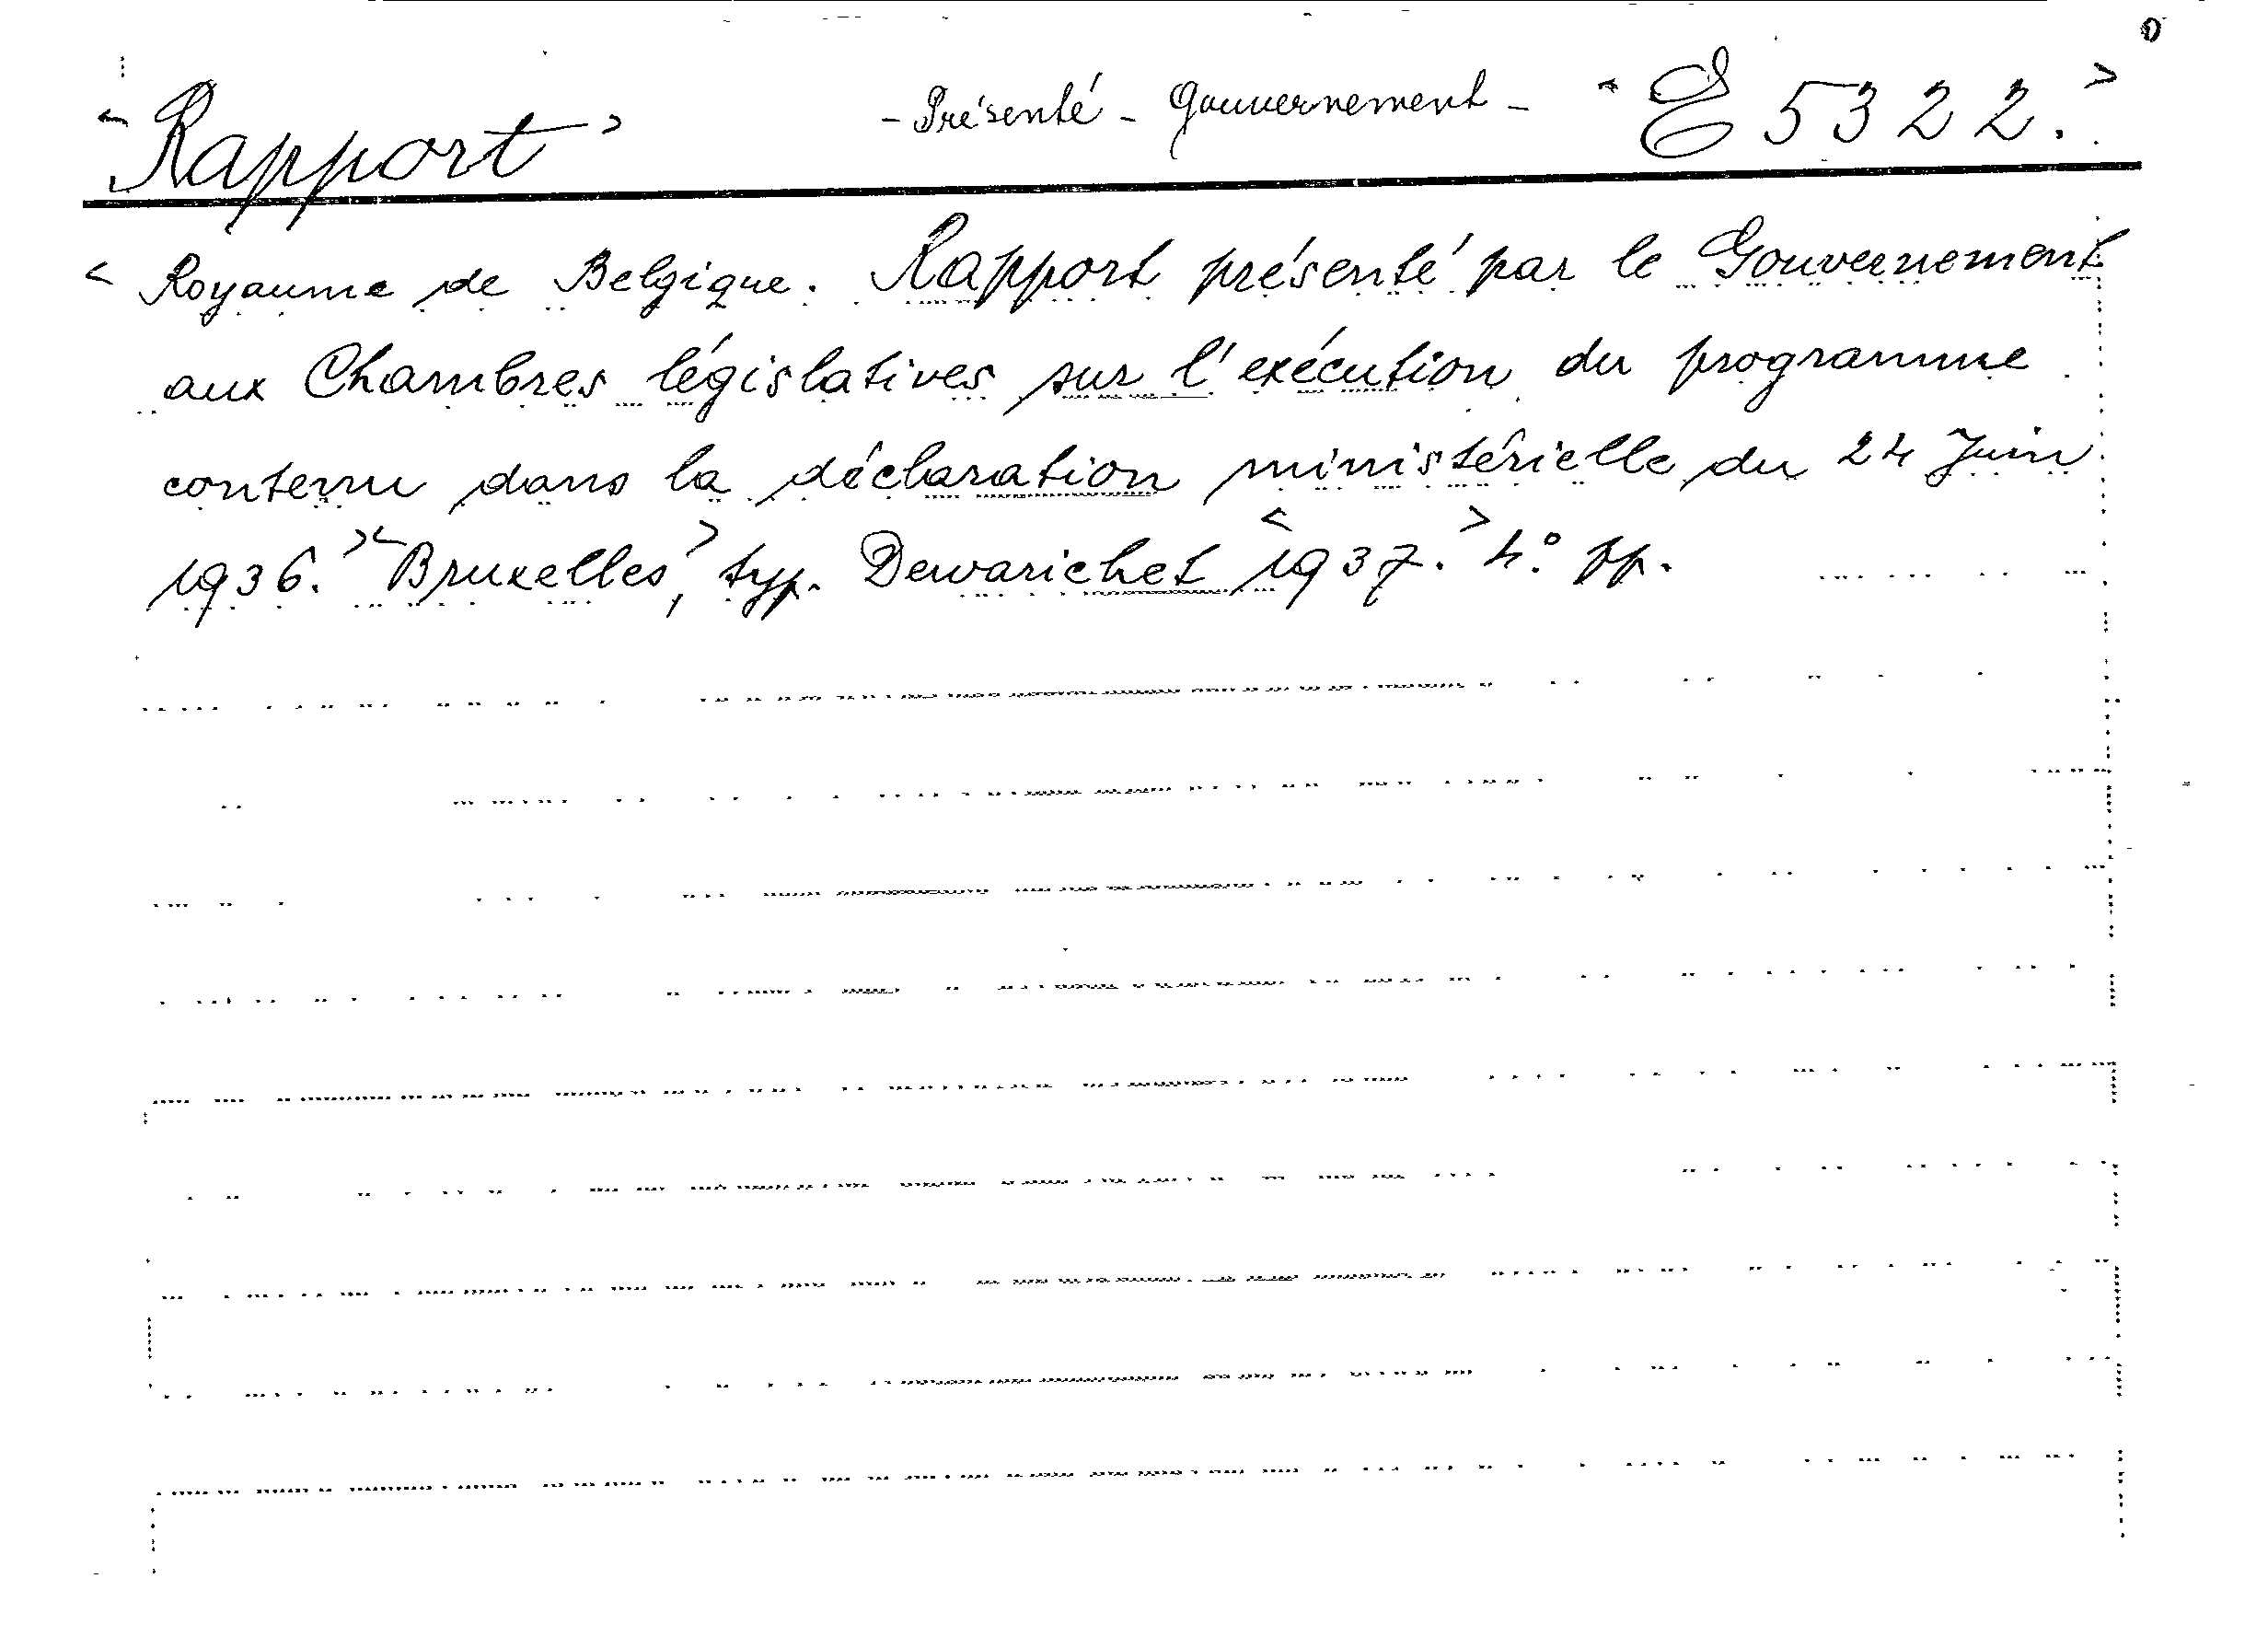 <Rapport> - Présenté - Gouvernement - <E 5322.>
< Royaume de Belgique. Rapport présenté par le Gouvernement
aux Chambres législatives sur l'exécution du programme
contenu dans la déclaration ministérielle du 24 Juin
1936.><Bruxelles,> typ. Dewarichet <1937.> 4° pp.